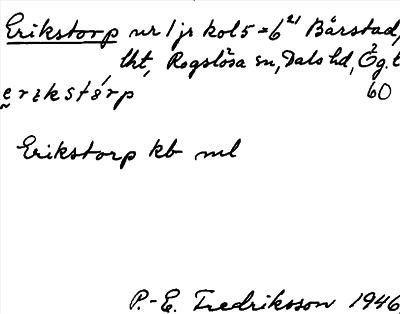 Erikstorp nr 1 jr kol 5 = 6²¹ Bårstad,
tht, Rogslösa sn, Dals hd, Ög. l
erikstórp 60
Erikstorp kb ml
P.-E. Fredriksson 1946,